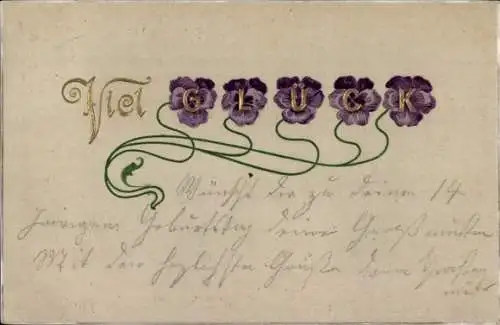 Viel GLÜCK
Wünscht dir zu deinem 14
Jährigem Geburtstag deine Großmutter
Mit den herzlichste Grüße dein Großen